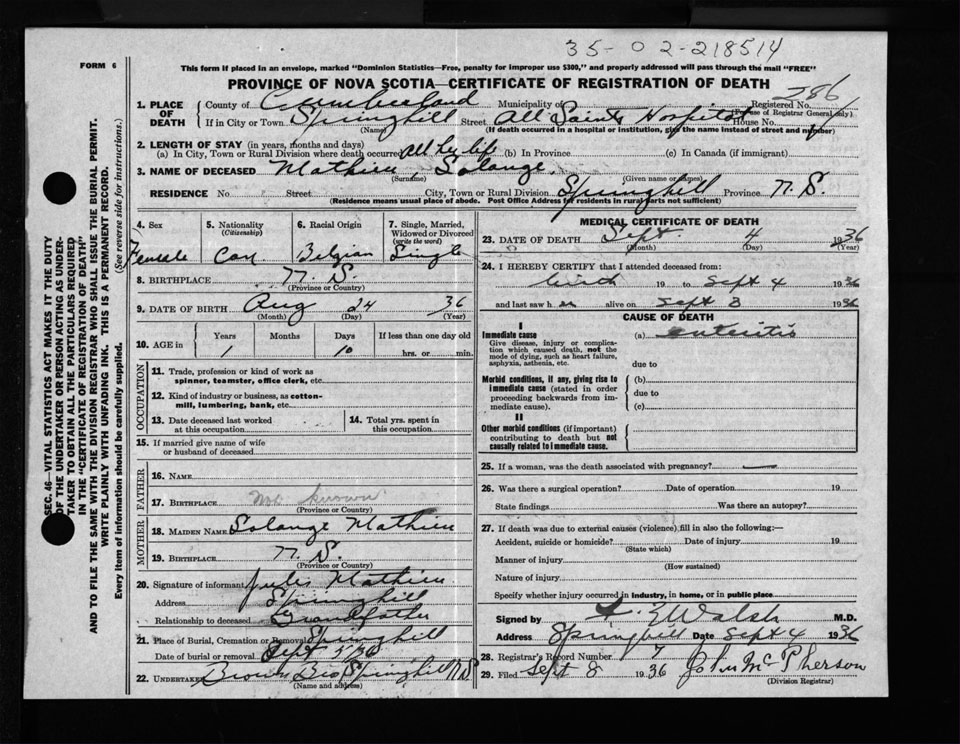 35-02-218514
FORM 6
This form if placed in an envelope, marked "Dominion Statistics—Free, penalty for improper use $300," and properly addressed will pass through the mail "FREE"
PROVINCE OF NOVA SCOTIA—CERTIFICATE OF REGISTRATION OF DEATH
286
1. PLACE OF DEATH County of Cumberland Municipality of Registered No.
(For use of Registrar General only)
If in City or Town Springhill Street All Saints Hospital House No.
(Name) (If death occurred in a hospital or institution, give the name instead of street and number)
2. LENGTH OF STAY (in years, months and days)
(a) In City, Town or Rural Division where death occurred All her life (b) In Province (c) In Canada (if immigrant)
3. NAME OF DECEASED Mathieu, Solange.
(Surname) (Given name or names)
RESIDENCE No Street City, Town or Rural Division Springhill Province N.S.
(Residence means usual place of abode. Post Office Address for residents in rural parts not sufficient)
4. Sex 5. Nationality (Citizenship) 6. Racial Origin 7. Single, Married, Widowed or Divorced (write the word)
Female Can Belgian Single
8. BIRTHPLACE N.S.
(Province or Country)
9. DATE OF BIRTH Aug 24 36
(Month) (Day) (Year)
10. AGE in Years Months Days If less than one day old
1 10 hrs. or min.
OCCUPATION
11. Trade, profession or kind of work as spinner, teamster, office clerk, etc.
12. Kind of industry or business, as cotton-mill, lumbering, bank, etc.
13. Date deceased last worked at this occupation
14. Total yrs. spent in this occupation
15. If married give name of wife or husband of deceased
FATHER
16. Name
17. Birthplace Not known
(Province or Country)
MOTHER
18. Maiden Name Solange Mathieu
19. Birthplace N.S.
(Province or Country)
20. Signature of informant Jules Mathieu
Address Springhill
Relationship to deceased Grandfather
21. Place of Burial, Cremation or Removal Springhill
Date of burial or removal Sept 5/36
22. Undertaker Brown Bros Springhill N.S.
(Name and address)
MEDICAL CERTIFICATE OF DEATH
23. DATE OF DEATH Sept. 4 1936
(Month) (Day) (Year)
24. I HEREBY CERTIFY that I attended deceased from:
birth 19 to Sept 4 1936
and last saw h er alive on Sept 3 1936
CAUSE OF DEATH
I
Immediate cause (a) enteritis
Give disease, injury or complication which caused death, not the mode of dying, such as heart failure, asphyxia, asthenia, etc.
due to
Morbid conditions, if any, giving rise to immediate cause (stated in order proceeding backwards from immediate cause).
(b)
due to
(c)
II
Other morbid conditions (if important) contributing to death but not causally related to immediate cause.
25. If a woman, was the death associated with pregnancy? —
26. Was there a surgical operation? Date of operation 19
State findings Was there an autopsy?
27. If death was due to external causes (violence) fill in also the following:—
Accident, suicide or homicide? Date of injury 19
(State which)
Manner of injury
(How sustained)
Nature of injury
Specify whether injury occurred in industry, in home, or in public place
Signed by Walsh M.D.
Address Springhill Date Sept 4 1936
28. Registrar's Record Number 7
29. Filed Sept 8 1936 John McPherson
(Division Registrar)
SEC. 46—VITAL STATISTICS ACT MAKES IT THE DUTY
OF THE UNDERTAKER OR PERSON ACTING AS UNDER-
TAKER TO OBTAIN ALL THE PARTICULARS REQUIRED
IN THE "CERTIFICATE OF REGISTRATION OF DEATH"
AND TO FILE THE SAME WITH THE DIVISION REGISTRAR WHO SHALL ISSUE THE BURIAL PERMIT.
WRITE PLAINLY WITH UNFADING INK. THIS IS A PERMANENT RECORD.
Every item of information should be carefully supplied. (See reverse side for instructions.)